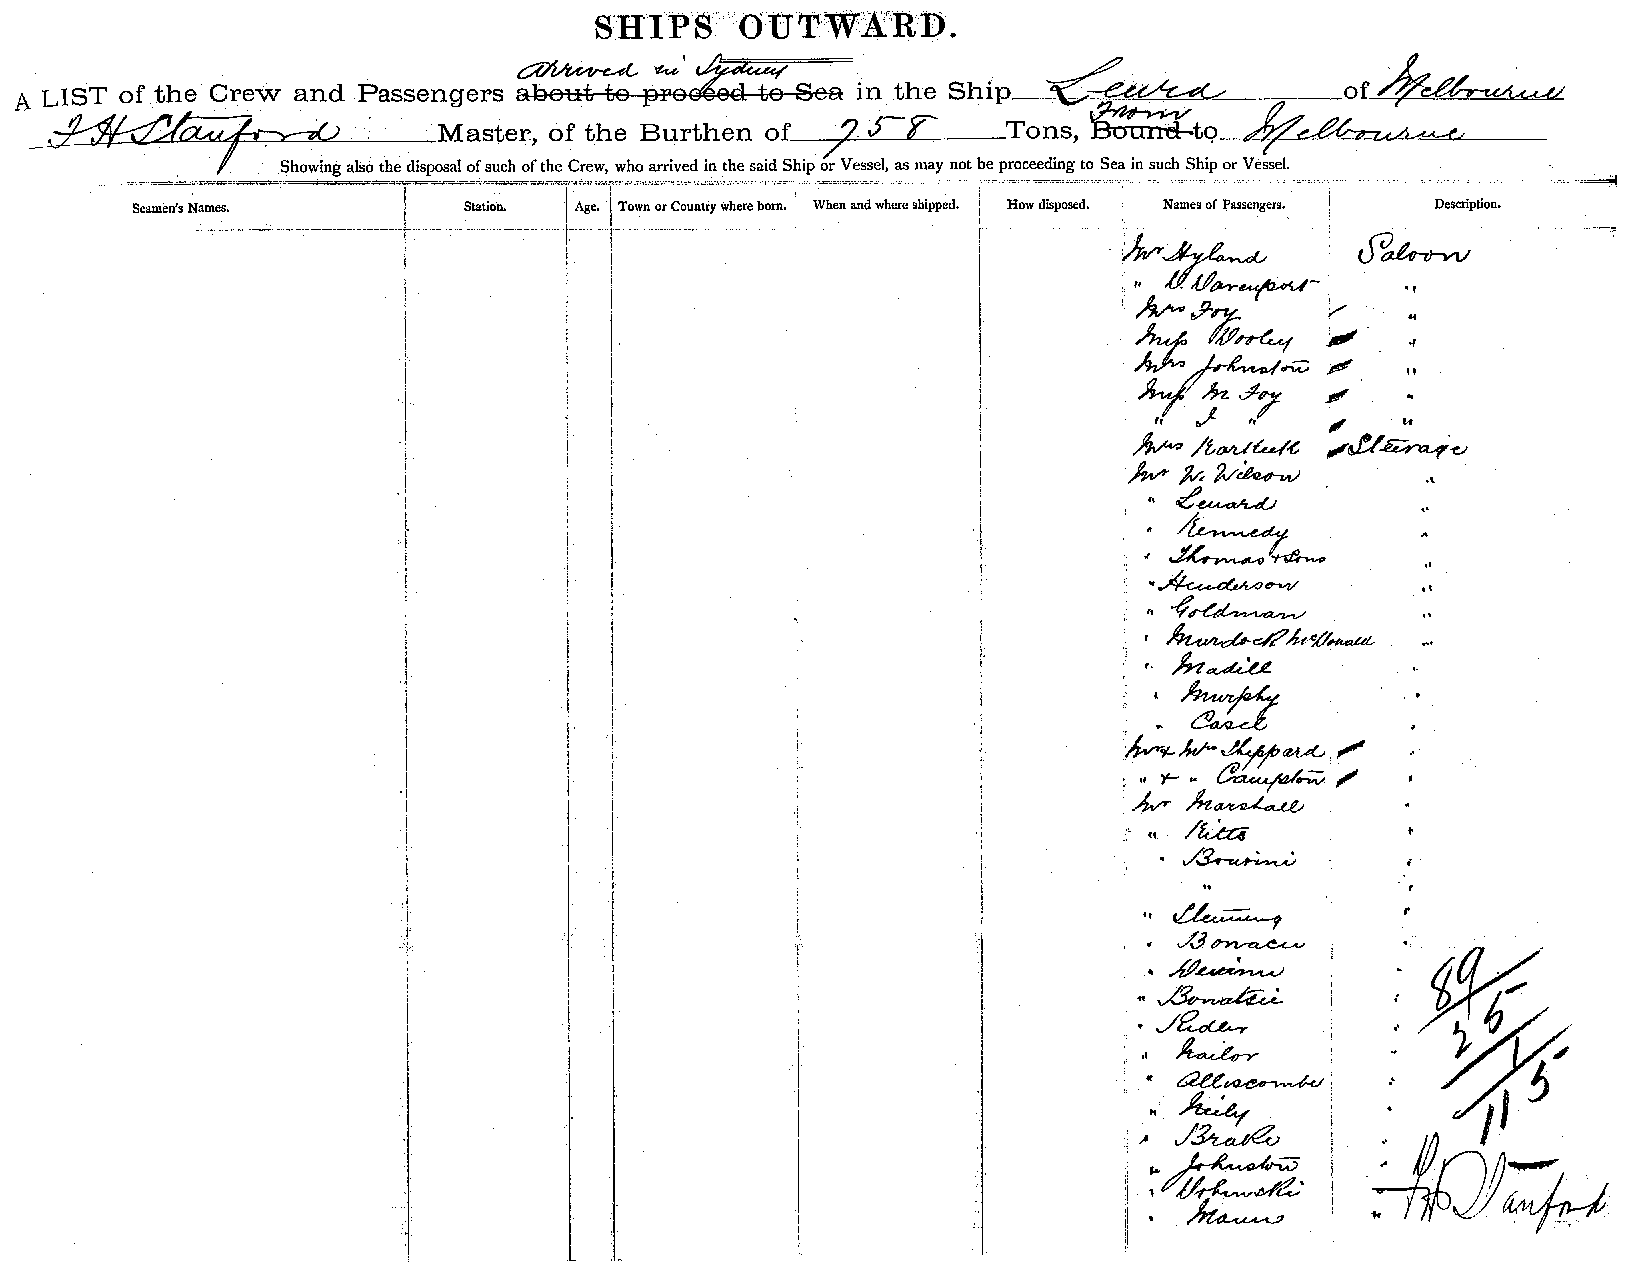 SHIPS OUTWARD.
Arrived in Sydney
A LIST of the Crew and Passengers about to proceed to Sea in the Ship Leura of Melbourne
From
F H Stanford Master, of the Burthen of 758 Tons, Bound to Melbourne
Showing also the disposal of such of the Crew, who arrived in the said Ship or Vessel, as may not be proceeding to Sea in such Ship or Vessel.
Seamen's Names. Station. Age. Town or Country where born. When and where shipped. How disposed. Names of Passengers. Description.
Mr Hyland Saloon
" D. Davenport "
Mrs Foy "
Miss Dooley "
Mrs Johnston "
Miss M Foy "
" I " "
Mrs Steerage
Mr W. Wilson "
" Lenard "
" Kennedy "
" Thomas & Sons "
" Henderson "
" Goldman "
" Murdock McDonald "
" Madill "
" Murphy "
" Casel "
Mr & Mrs Sheppard "
" & " Campton "
Mr Marshall "
" Kitts "
" Bourini "
" "
" "
" "
" "
" Bonatsie "
" Ridler "
" Nailor "
" Alliscombe "
" Neily "
" Brake "
" Johnston "
" "
" Mann "
89
25
1 5
11
F H Stanford